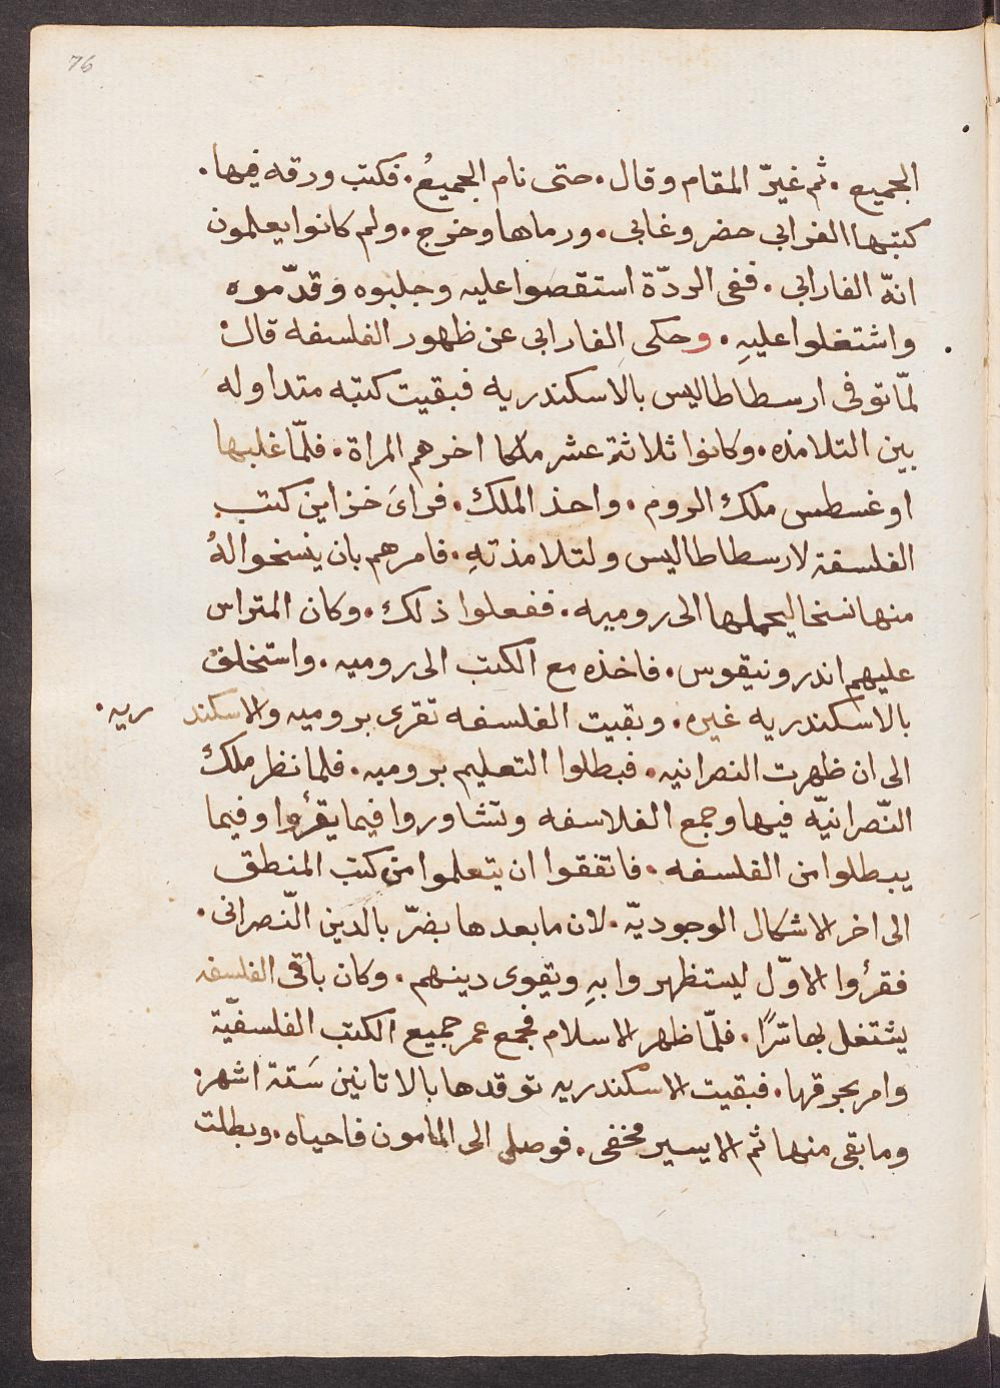 76
الجميع . ثم غيّر المقام وقال . حتى نام الجميعُ . فكتب ورقه فيها .
كتبها الفرابى حضر وغابى . ورماها وخرج . ولم كانوا يعلمون
انهّ الفارابي . ففى الردّة استقصوا عليه وجلبوه وقدّموه
واشتغلوا عليهِ . وحكى الفارابى عن ظهور الفلسفه قال :
لمّا توفى ارسطاطاليس بالاسكندريه فبقيت كتبه متداوله
بين التلامذه . وكانوا ثلاثة عشر ملكا اخرهم المراة . فلمّا غلبها
اوغسطس ملك الروم . واحذ الملك . فراىَ خزاين كتب
الفلسفة لارسطاطاليس ولتلامذتهِ . فامرهم بان ينسخوا لهُ
منها نسخا ليحملها الى روميه . ففعلوا ذلك . وكان المتراس
عليهم اندرونيقوس . فاخذه مع الكتب الى روميه . واستخلف
بالاسكندريه غيره . وبقيت الفلسفه تقرى بروميه والاسكند ريه .
الى ان ظهرت النصرانيه . فبطلوا التعليم بروميه . فلما نظر ملك
النّصرانيّه فيها وجمع الفلاسفه وتشاوروا فيما يقرؤا وفيما
يبطلوا من الفلسفه . فاتفقوا ان يتعلموا من كتب المنطق
الى اخر الاشكال الوجوديّه . لان مابعدها يضرّ بالدين النّصرانى .
فقرؤا الاوّل ليستظهروا بهِ ويقوى دينهم . وكان باقى الفلسفه
يشتغل بها سرًا . فلمّا ظهر الاسلام فجمع عمر جميع الكتب الفلسفيّة
وامر بحرقها . فبقيت الاسكندريه توقدها بالاتانين سَتة اشهر :
ومابقى منها ثم الا يسير مخفى . فوصلى الى المامون فاحياه . وبطلت